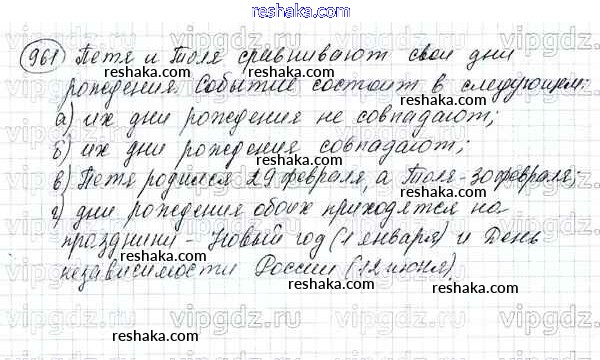 reshaka.com
961 Петя и Толя сравнивают свои дни
рождения. Событие состоит в следующем:
а) их дни рождения не совпадают;
б) их дни рождения совпадают;
в) Петя родился 29 февраля, а Толя - 30 февраля;
г) дни рождения обоих приходятся на
праздники - Новый год (1 января) и День
независимости России (12 июня).
reshaka.com
vipgdz.ru